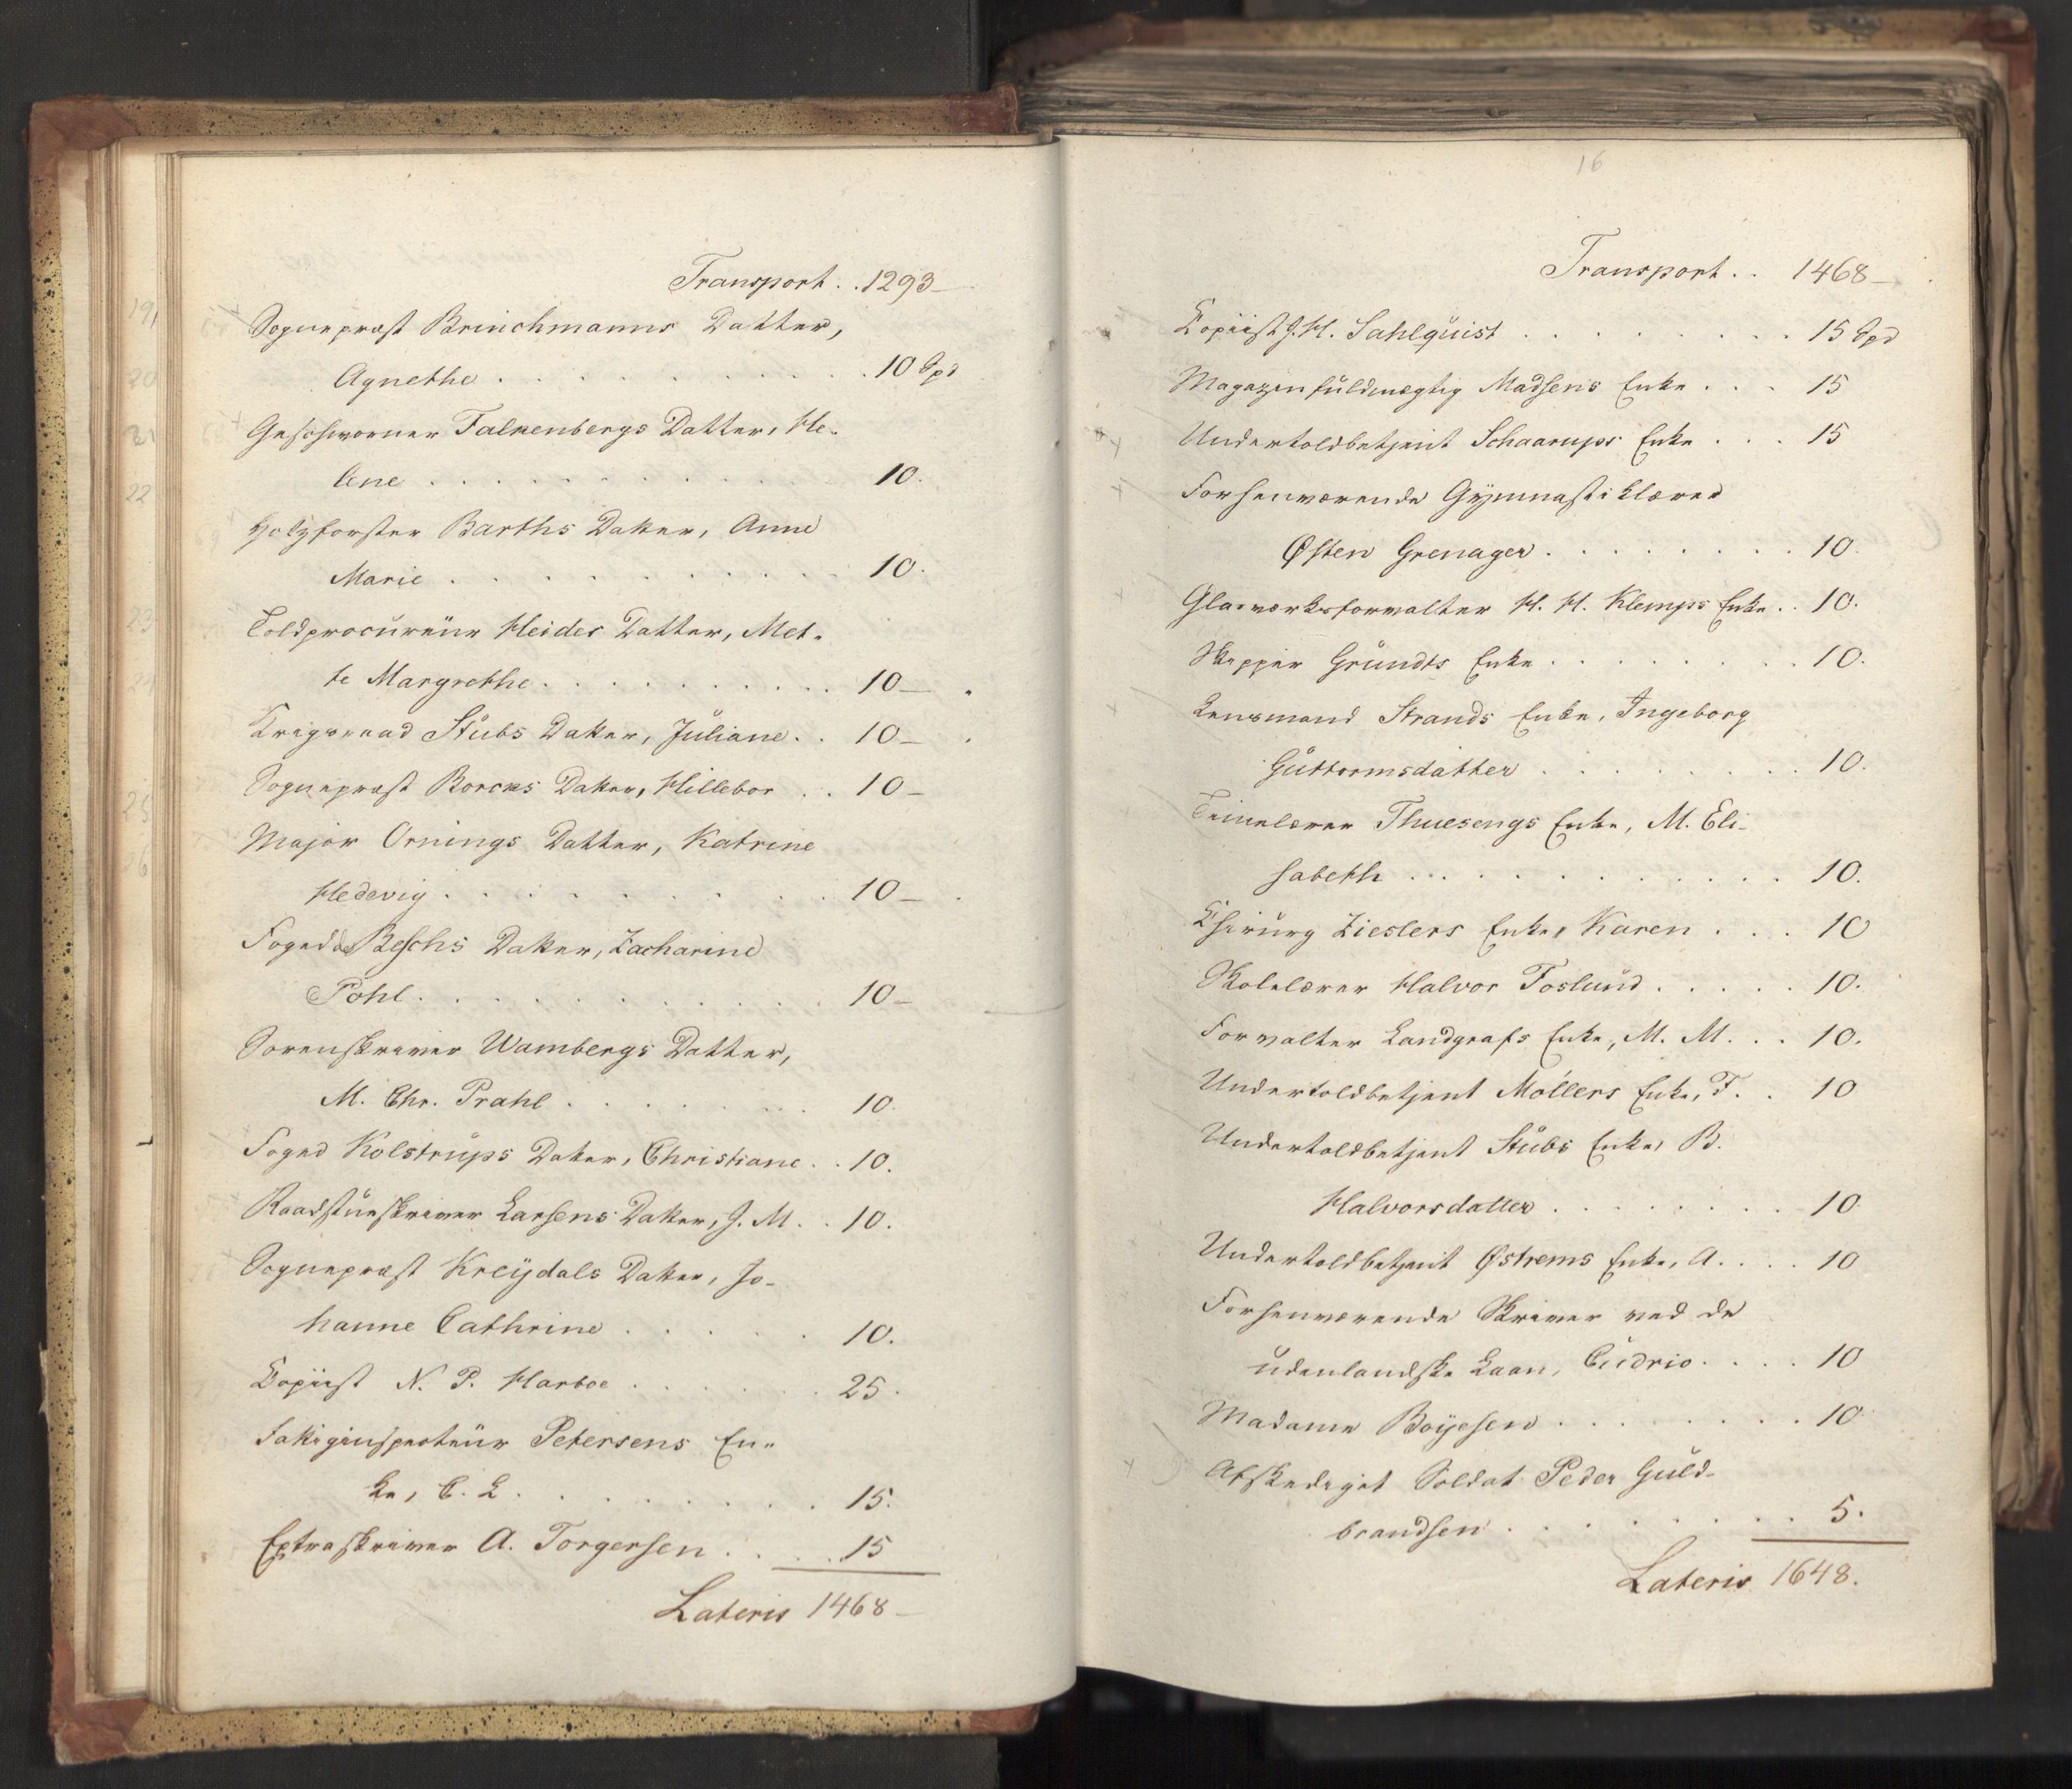 Transport . . 1293 —
Sognepræst Brinchmanns Datter,
Agnethe . . . 10 Spd
Geschworner Falkenbergs Datter, He-
lene . . . 10.
Holzforster Barths Datter, Anne
Marie . . . 10.
Toldprocureur Heides Datter, Met-
te Margrethe . . . 10 —
Krigsraad Stubs Datter, Juliane . . 10 —
Sognepræst Borchs Datter, Hillebor . . 10 —
Major Ornings Datter, Katrine
Hedevig . . . 10 —
Foged de Beschs Datter, Zacharine
Pohl . . . 10 —
Sorenskriver Wambergs Datter,
M. Chr. Prahl . . . 10.
Foged Kolstrups Datter, Christiane . . 10.
Raadstueskriver Larsens Datter, J. M. . . 10.
Sognepræst Kreydals Datter, Jo-
hanne Cathrine . . . 10.
Kopiist N. P. Harboe . . . 25.
Fattiginspecteur Petersens En-
ke, C. L. . . . 15.
Extraskriver A. Torgersen . . . 15
Lateris 1468 —
16
Transport . . 1468 —
Kopiist J. H. Sahlquist . . . 15 Spd
Magazinfuldmægtig Madsens Enke . . . 15
Undertoldbetjent Schaarups Enke . . . 15
Forhenværende Gymnastiklærer
Østen Grenager . . . 10.
Glasværksforvalter H. H. Klemps Enke . . 10.
Skipper Grundts Enke . . . 10.
Lensmand Strands Enke, Ingeborg
Guttormsdatter . . . 10.
Thuesengs Enke, M. Eli-
sabeth . . . 10.
Chirurg Zieslers Enke, Karen . . . 10
Skolelærer Halvor Foslund . . . 10.
Forvalter Landgrafs Enke, M. M. . . 10.
Undertoldbetjent Møllers Enke, F. . . 10
Undertoldbetjent Stubs Enke, B.
Halvorsdatter . . . 10
Undertoldbetjent Østrems Enke, A. . . . 10
Forhenværende Skriver ved de
udenlandske Laan, Cudrio . . . 10
Madame Boyesen . . . 10
Afskediget Soldat Peder Guld-
brandsen . . . 5.
Lateris 1648.